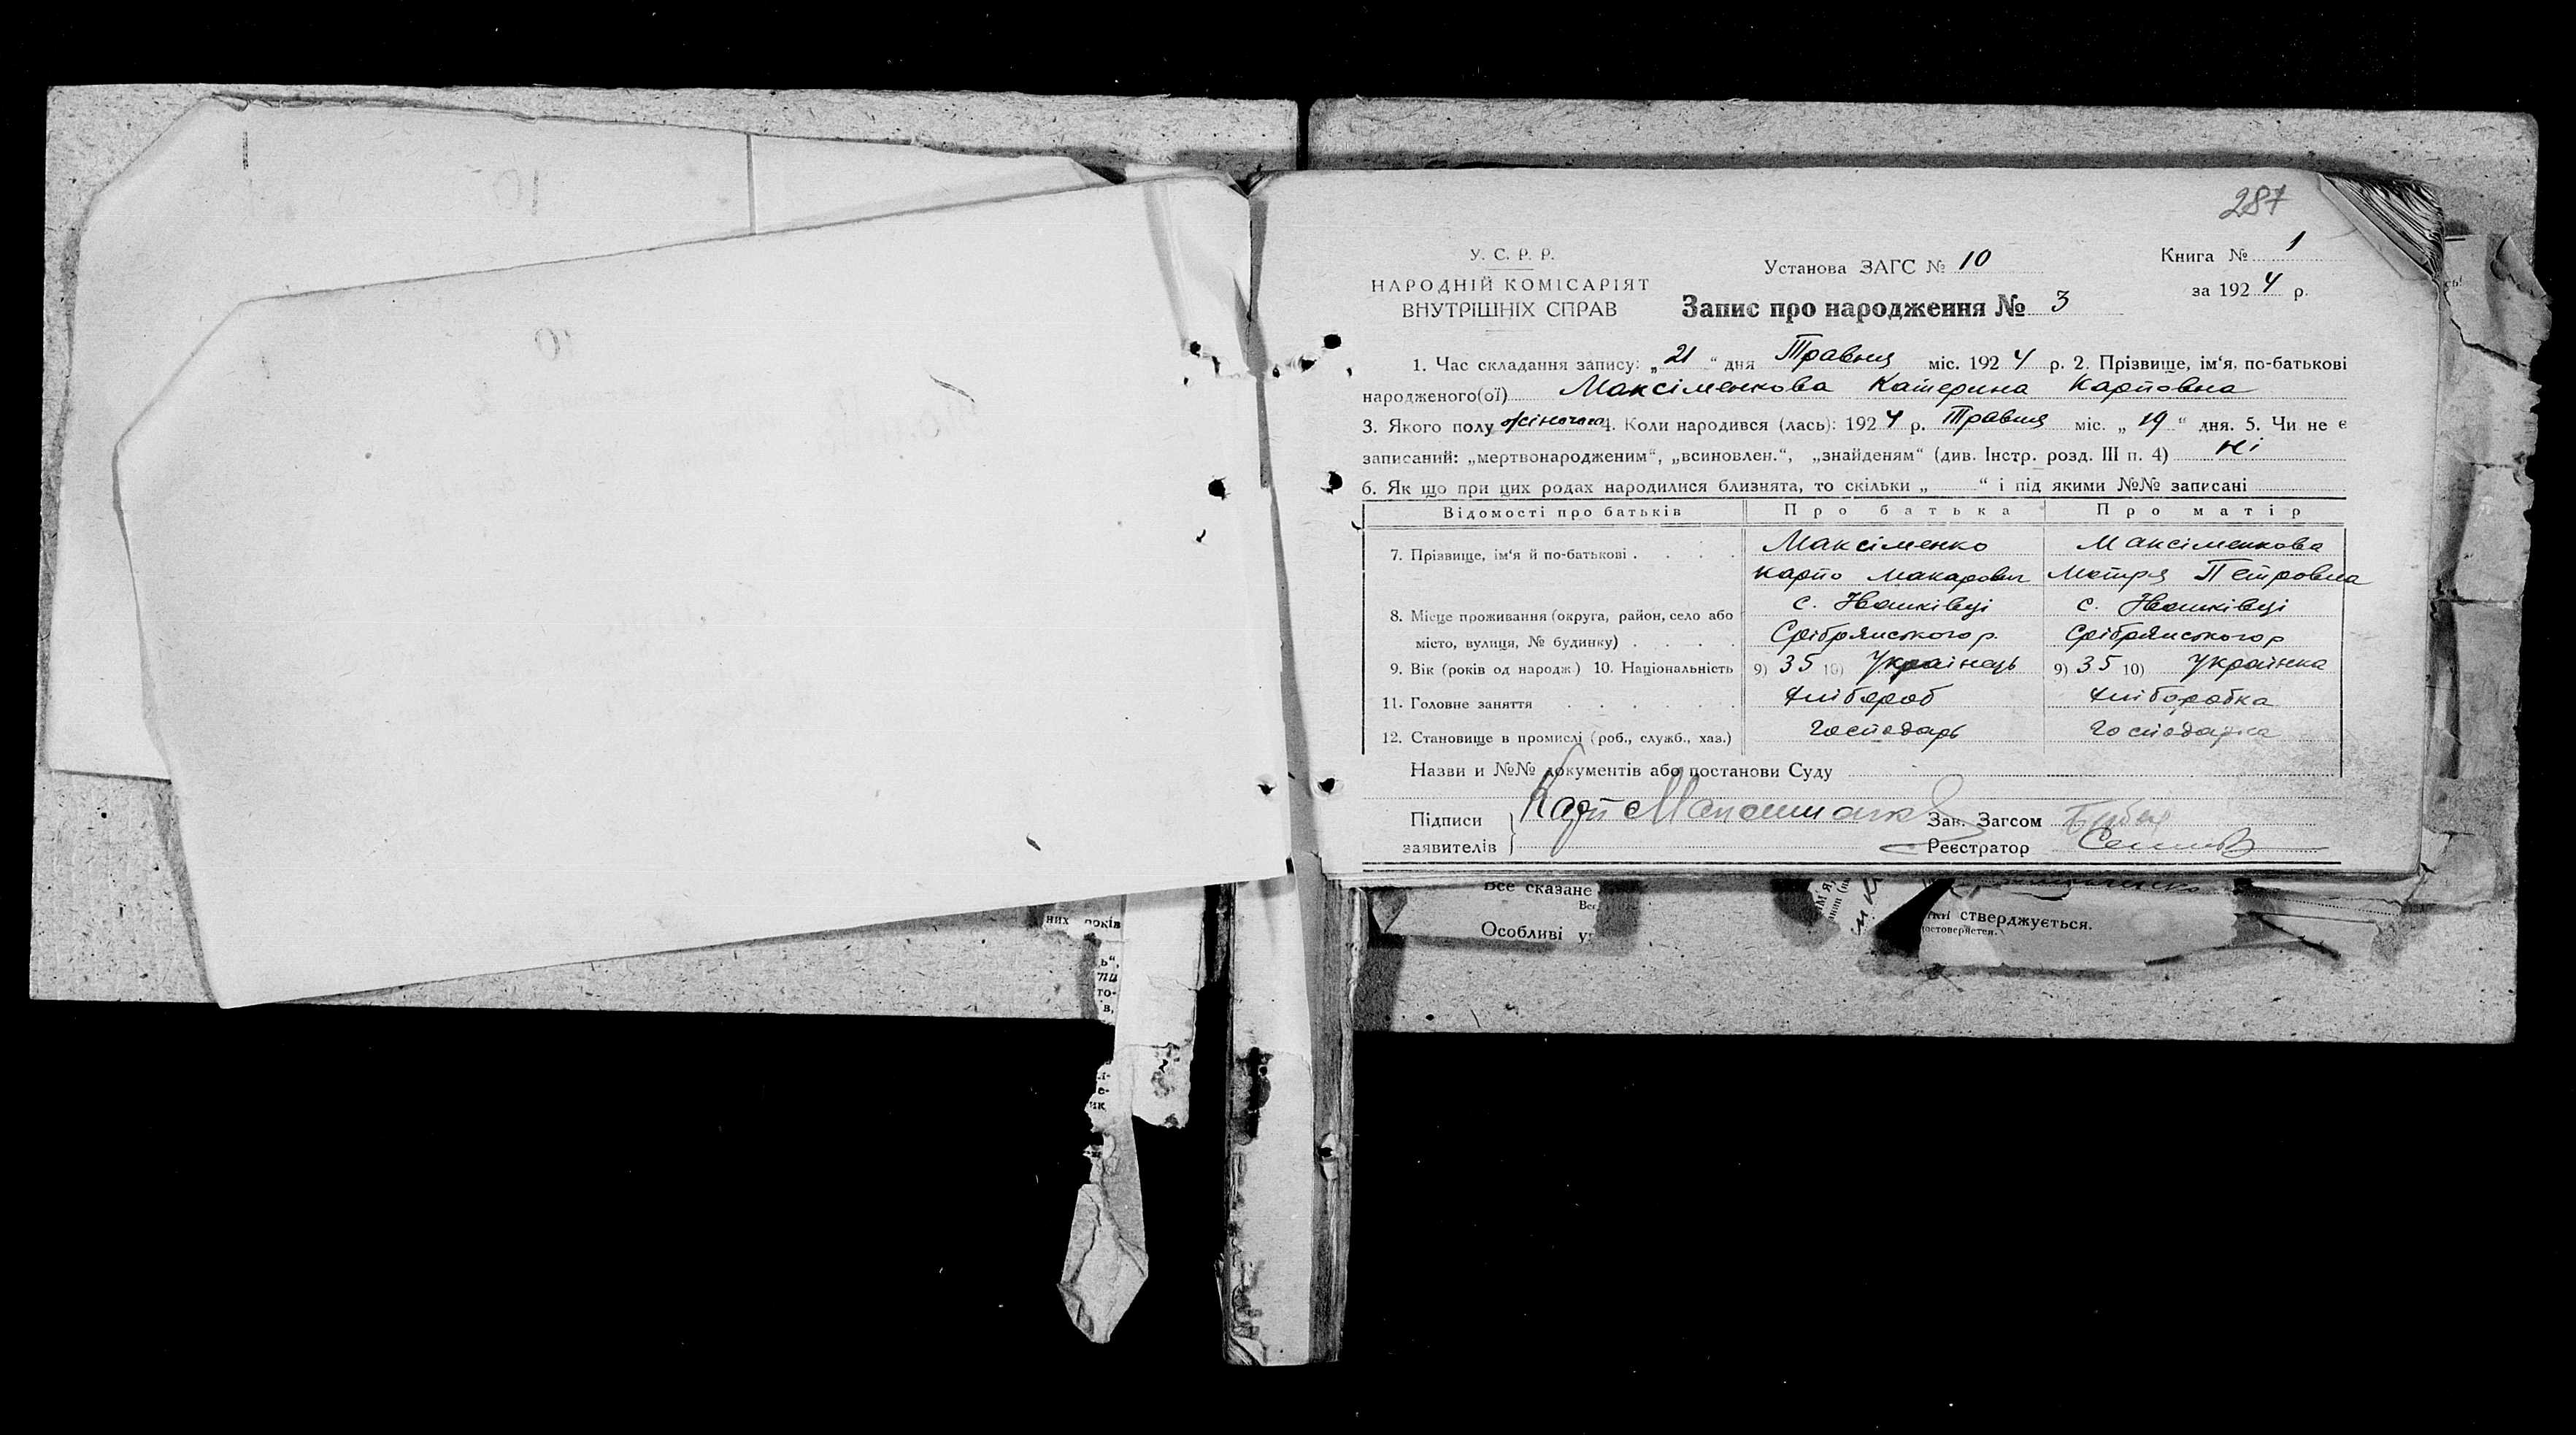 287
У. С. Р. Р.
НАРОДНІЙ КОМІСАРІЯТ
ВНУТРІШНІХ СПРАВ
Установа ЗАГС № 10
Запис про народження № 3
Книга № 1
за 1924 р.
1. Час складання запису: „21“ дня Травня міс. 1924 р. 2. Прізвище, ім‘я, по-батькові
народженого(ої) Максіменкова Катерина Карповна
3. Якого полу жіночого 4. Коли народився (лась): 1924 р. Травня міс. „19“ дня. 5. Чи не є
записаний: „мертвонародженим“, „всиновлен.“, „знайденям“ (див. Інстр. розд. III п. 4) ні
6. Як що при цих родах народилися близнята, то скільки „ “ і під якими №№ записані
Відомості про батьків Про батька Про матір
7. Прізвище, ім‘я й по-батькові . . . . Максіменко Максіменкова
Карпо Макарович Мотря Петровна
8. Місце проживання (округа, район, село або с. Івашківці с. Івашківці
місто, вулиця, № будинку) . . . . Срібрянського р. Срібрянського р
9. Вік (років од народж.) 10. Національність 9) 35 10) Українець 9) 35 10) Українка
11. Головне заняття . . . . . . Хлібороб Хліборобка
12. Становище в промислі (роб., служб., хаз.) Господарь Господарка
Назви и №№ документів або постанови Суду
Підписи Карпо Зав. Загсом
заявителів Реєстратор
Все сказане
Особливі
них років
ь“,
то-
в,
стверджується.